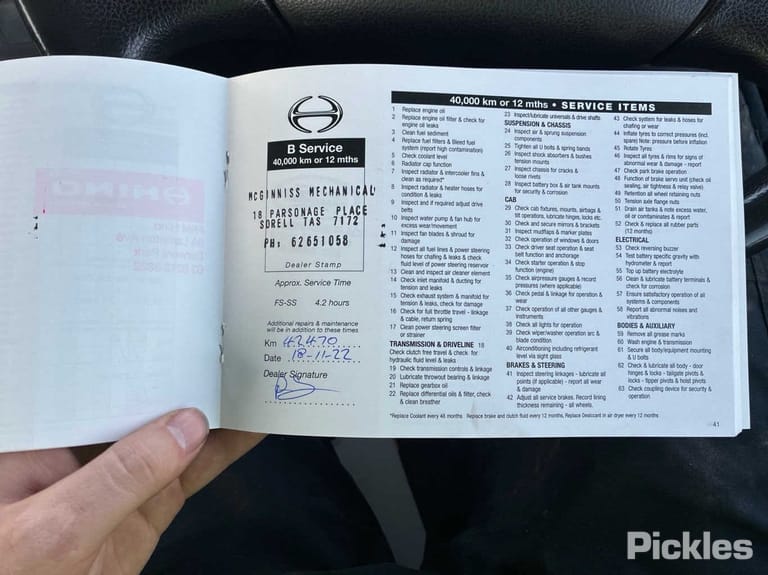 B Service
40,000 km or 12 mths
MCGINNISS MECHANICAL
18 PARSONAGE PLACE
SORELL TAS 7172
PH: 62651058
Dealer Stamp
Approx. Service Time
FS-SS 4.2 hours
Additional repairs & maintenance
will be in addition to these times
Km 42470
Date 18-11-22
Dealer Signature
40,000 km or 12 mths • SERVICE ITEMS
1 Replace engine oil
2 Replace engine oil filter & check for
engine oil leaks
3 Clean fuel sediment
4 Replace fuel filters & Bleed fuel
system (report high contamination)
5 Check coolant level
6 Radiator cap function
7 Inspect radiator & intercooler fins &
clean as required*
8 Inspect radiator & heater hoses for
condition & leaks
9 Inspect and if required adjust drive
belts
10 Inspect water pump & fan hub for
excess wear/movement
11 Inspect fan blades & shroud for
damage
12 Inspect all fuel lines & power steering
hoses for chafing & leaks & check
fluid level of power steering reservoir
13 Clean and inspect air cleaner element
14 Check inlet manifold & ducting for
tension and leaks
15 Check exhaust system & manifold for
tension & leaks, check for damage
16 Check for full throttle travel - linkage
& cable, return spring
17 Clean power steering screen filter
or strainer
TRANSMISSION & DRIVELINE 18
Check clutch free travel & check for
hydraulic fluid level & leaks
19 Check transmission controls & linkage
20 Lubricate throwout bearing & linkage
21 Replace gearbox oil
22 Replace differential oils & filter, check
& clean breather
23 Inspect/lubricate universals & drive shafts
SUSPENSION & CHASSIS
24 Inspect air & sprung suspension
components
25 Tighten all U bolts & spring bands
26 Inspect shock absorbers & bushes
tension mounts
27 Inspect chassis for cracks &
loose rivets
28 Inspect battery box & air tank mounts
for security & corrosion
CAB
29 Check cab fixtures, mounts, airbags &
tilt operations, lubricate hinges, locks etc.
30 Check and secure mirrors & brackets
31 Inspect mudflaps & marker plates
32 Check operation of windows & doors
33 Check driver seat operation & seat
belt function and anchorage
34 Check starter operation & stop
function (engine)
35 Check air/pressure gauges & record
pressures (where applicable)
36 Check pedal & linkage for operation &
wear
37 Check operation of all other gauges &
instruments
38 Check all lights for operation
39 Check wiper/washer operation arc &
blade condition
40 Airconditioning including refrigerant
level via sight glass
BRAKES & STEERING
41 Inspect steering linkages - lubricate all
points (if applicable) - report all wear
& damage
42 Adjust all service brakes. Record lining
thickness remaining - all wheels.
43 Check system for leaks & hoses for
chafing or wear
44 Inflate tyres to correct pressures (incl.
spare) Note: pressure before inflation
45 Rotate Tyres
46 Inspect all tyres & rims for signs of
abnormal wear & damage - report
47 Check park brake operation
48 Function of brake servo unit (check oil
sealing, air tightness & relay valve)
49 Retention all wheel retaining nuts
50 Tension axle flange nuts
51 Drain air tanks & note excess water,
oil or contaminates & report
52 Check & replace all rubber parts
(12 months)
ELECTRICAL
53 Check reversing buzzer
54 Test battery specific gravity with
hydrometer & report
55 Top up battery electrolyte
56 Clean & lubricate battery terminals &
check for corrosion
57 Ensure satisfactory operation of all
systems & components
58 Report all abnormal noises and
vibrations
BODIES & AUXILIARY
59 Remove all grease marks
60 Wash engine & transmission
61 Secure all body/equipment mounting
& U bolts
62 Check & lubricate all body - door
hinges & locks - tailgate pivots &
locks - tipper pivots & hoist pivots
63 Check coupling device for security &
operation
*Replace Coolant every 48 months Replace brake and clutch fluid every 12 months, Replace Desiccant in air dryer every 12 months
41
Pickles